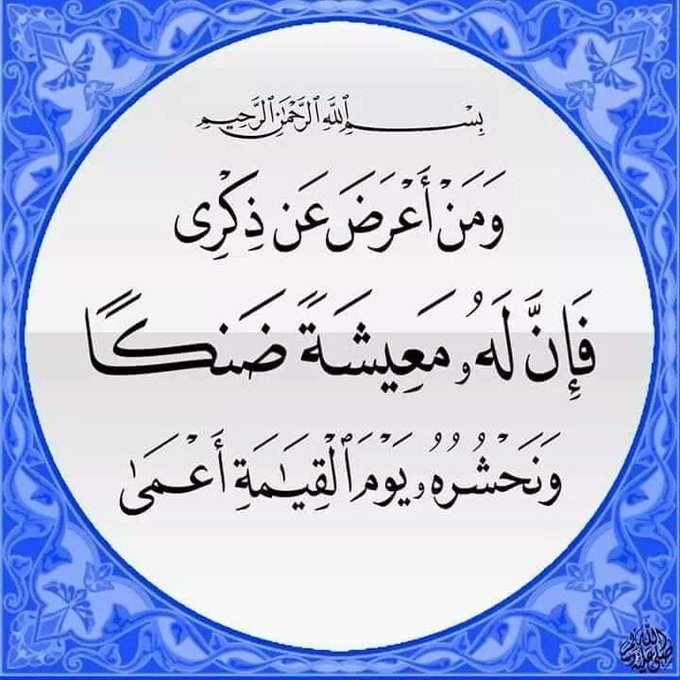 بِسْمِ ٱللَّهِ ٱلرَّحْمَٰنِ ٱلرَّحِيمِ
وَمَنْ أَعْرَضَ عَن ذِكْرِى
فَإِنَّ لَهُۥ مَعِيشَةً ضَنكًا
وَنَحْشُرُهُۥ يَوْمَ ٱلْقِيَٰمَةِ أَعْمَىٰ
صلى الله عليه وسلم